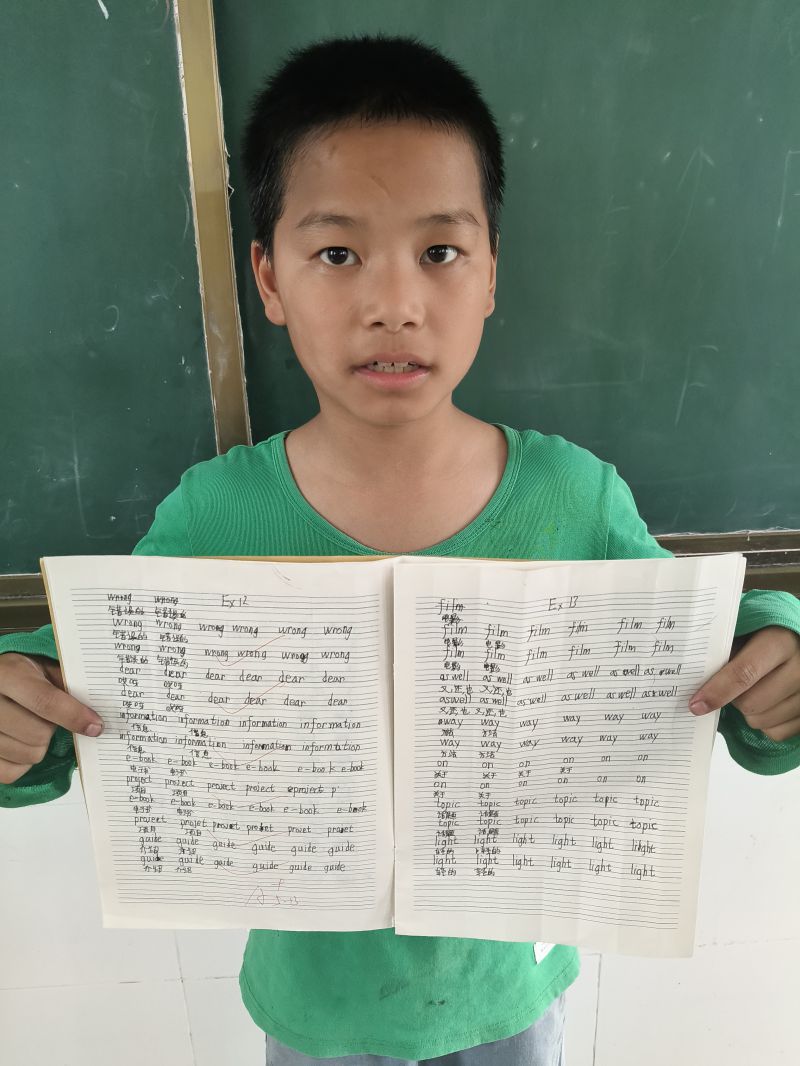 wrong wrong Ex 12
错误的 错误的
wrong wrong wrong wrong wrong wrong
错误的 错误的
wrong wrong wrong wrong wrong wrong
错误的 错误的
dear dear dear dear dear dear
哎呀 哎呀
dear dear dear dear dear dear
哎呀 哎呀
information information information information
信息 信息
information information information information
信息 信息
e-book e-book e-book e-book e-book e-book
电子书 电子书
project project project project project p
项目 项目
e-book e-book e-book e-book e-book e-book
电子书 电子书
project projet project project projet project
项目 项目
guide guide guide guide guide guide
介绍 介绍
guide guide guide guide guide guide
介绍 介绍
A 5.13
film Ex 13
电影
film film film film film film
电影 电影
film film film film film film
电影 电影
as well as well as well as well as well as well
又,还,也 又,还,也
as well as well as well as well as well as well
又,还,也 又,还,也
way way way way way way
方法 方法
way way way way way way
方法 方法
on on on on on on
关于 关于 关于 关于
on on on on on on
关于 关于
topic topic topic topic topic topic
topic topic topic topic topic topic
light light light light light light
轻的 轻的
light light light light light light
轻的 轻的